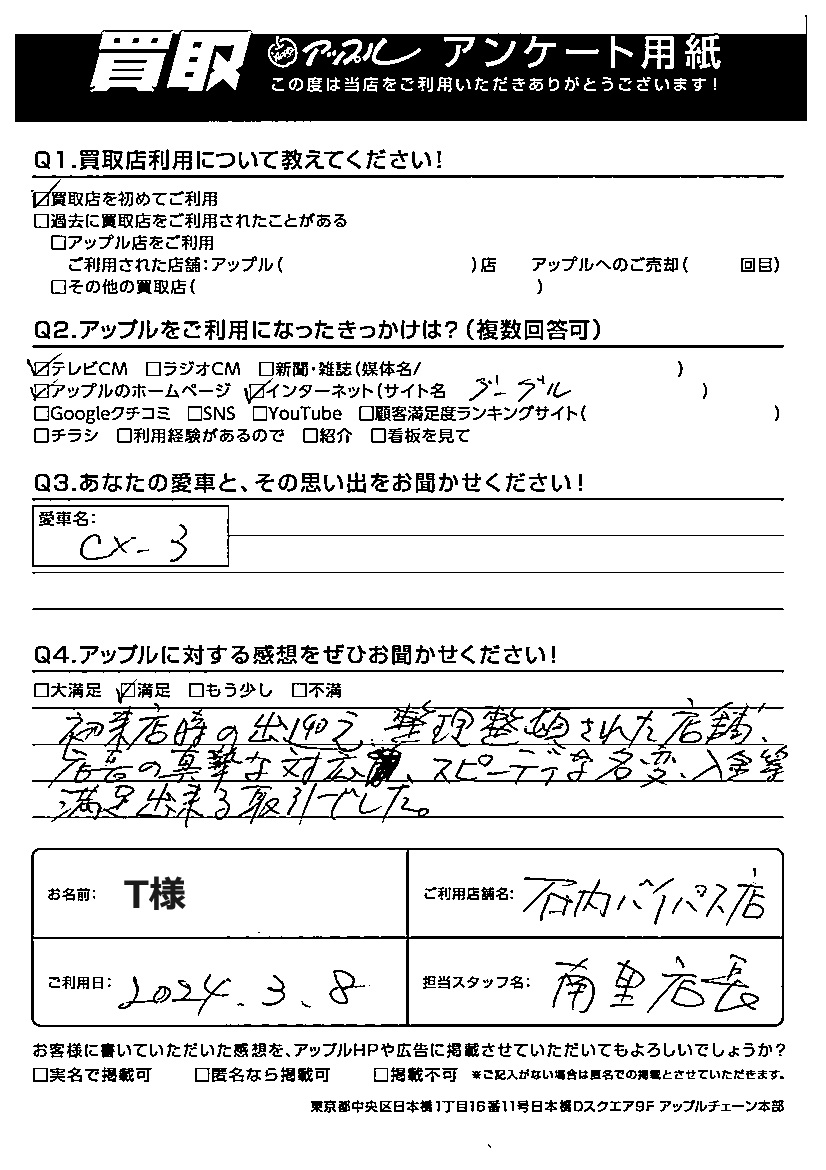 買取 アップル アンケート用紙
この度は当店をご利用いただきありがとうございます!
Q1.買取店利用について教えてください!
☑買取店を初めてご利用
□過去に買取店をご利用されたことがある
□アップル店をご利用
ご利用された店舗:アップル( )店 アップルへのご売却( 回目)
□その他の買取店( )
Q2.アップルをご利用になったきっかけは?(複数回答可)
☑テレビCM □ラジオCM □新聞・雑誌(媒体名/ )
☑アップルのホームページ ☑インターネット(サイト名 グーグル )
□Googleクチコミ □SNS □YouTube □顧客満足度ランキングサイト( )
□チラシ □利用経験があるので □紹介 □看板を見て
Q3.あなたの愛車と、その思い出をお聞かせください!
愛車名:
CX-3
Q4.アップルに対する感想をぜひお聞かせください!
□大満足 ☑満足 □もう少し □不満
初来店時の出迎え、整理整頓された店舗、
店長の真摯な対応、スピーディな名変、入金等
満足出来る取引でした。
お名前: T様 ご利用店舗名: 石内バイパス店
ご利用日: 2024.3.8 担当スタッフ名: 南里店長
お客様に書いていただいた感想を、アップルHPや広告に掲載させていただいてもよろしいでしょうか?
□実名で掲載可 □匿名なら掲載可 □掲載不可 ※ご記入がない場合は匿名での掲載とさせていただきます。
東京都中央区日本橋1丁目16番11号日本橋Dスクエア9F アップルチェーン本部